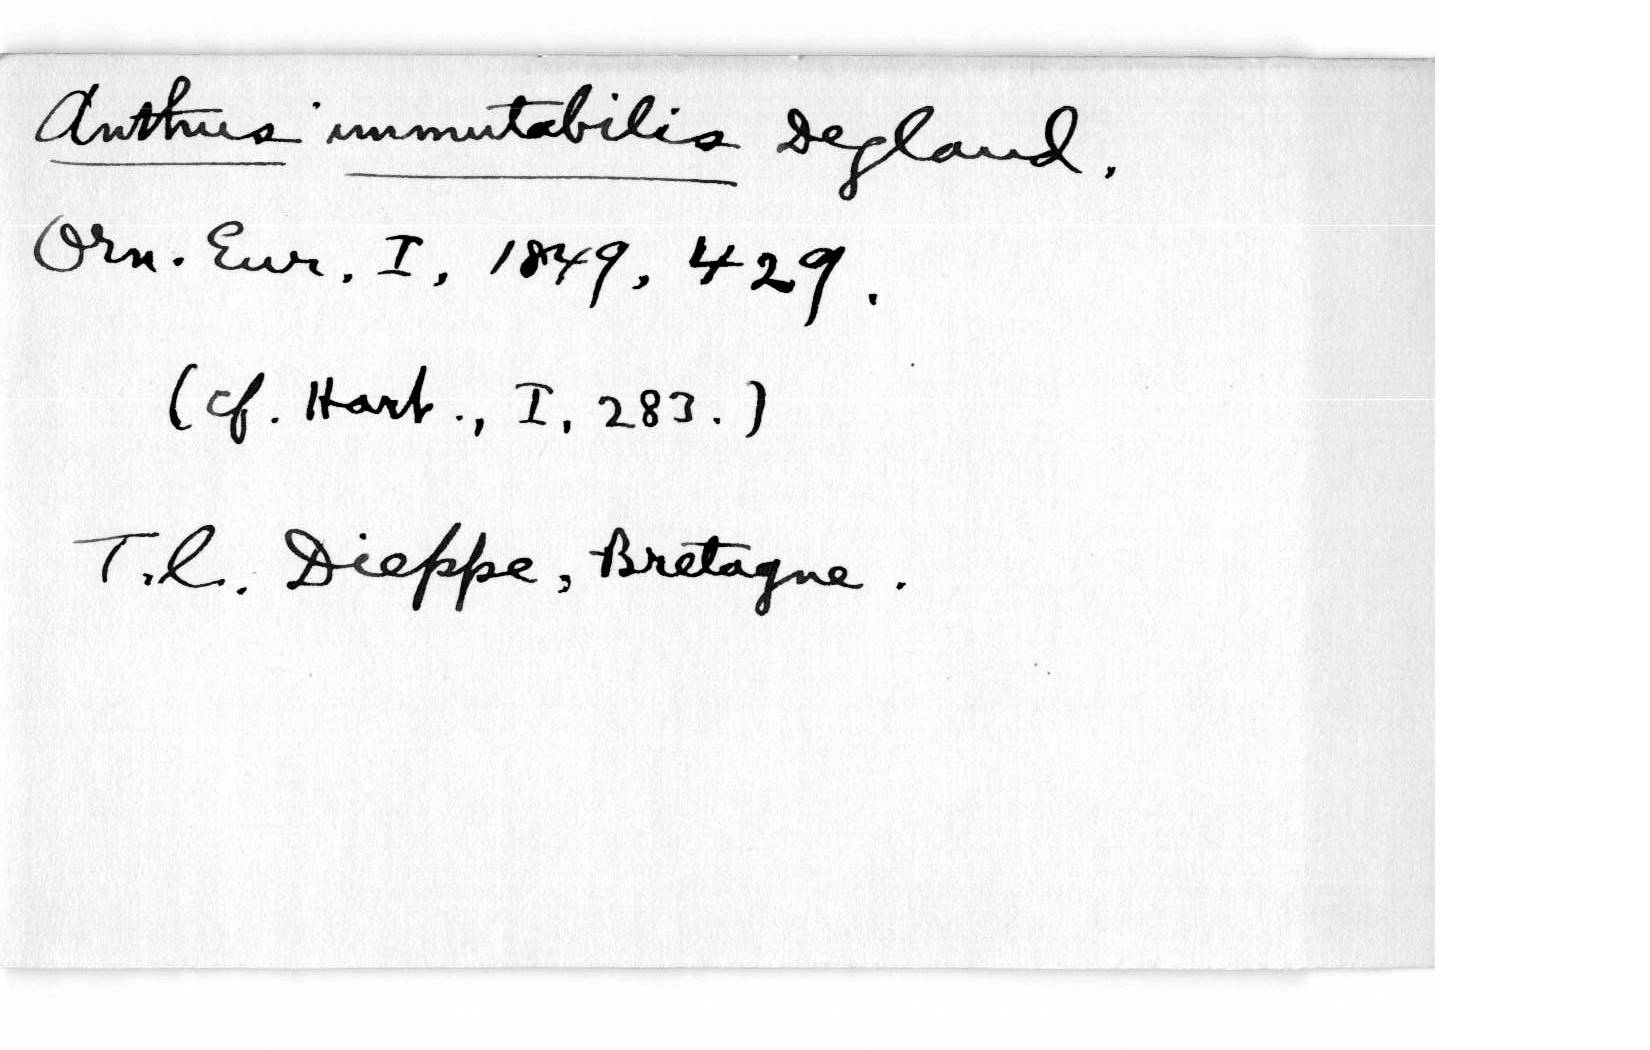 Anthus immutabilis Degland.
Orn. Eur. I, 1849, 429.
(cf. Hart., I, 283.)
T.l. Dieppe, Bretagne.